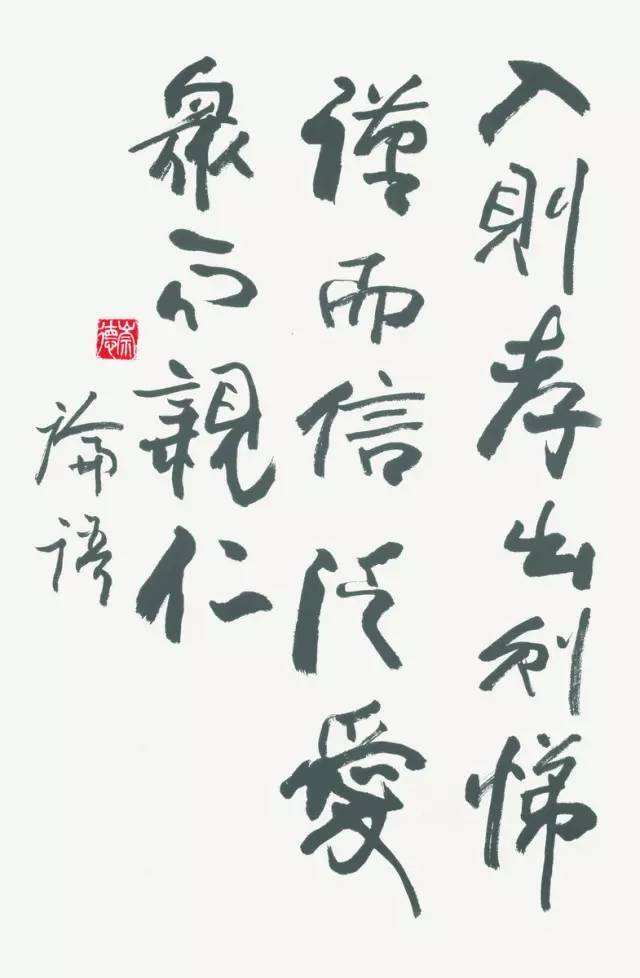 入則孝出則悌
謹而信汎愛
衆而親仁
論語
崇德